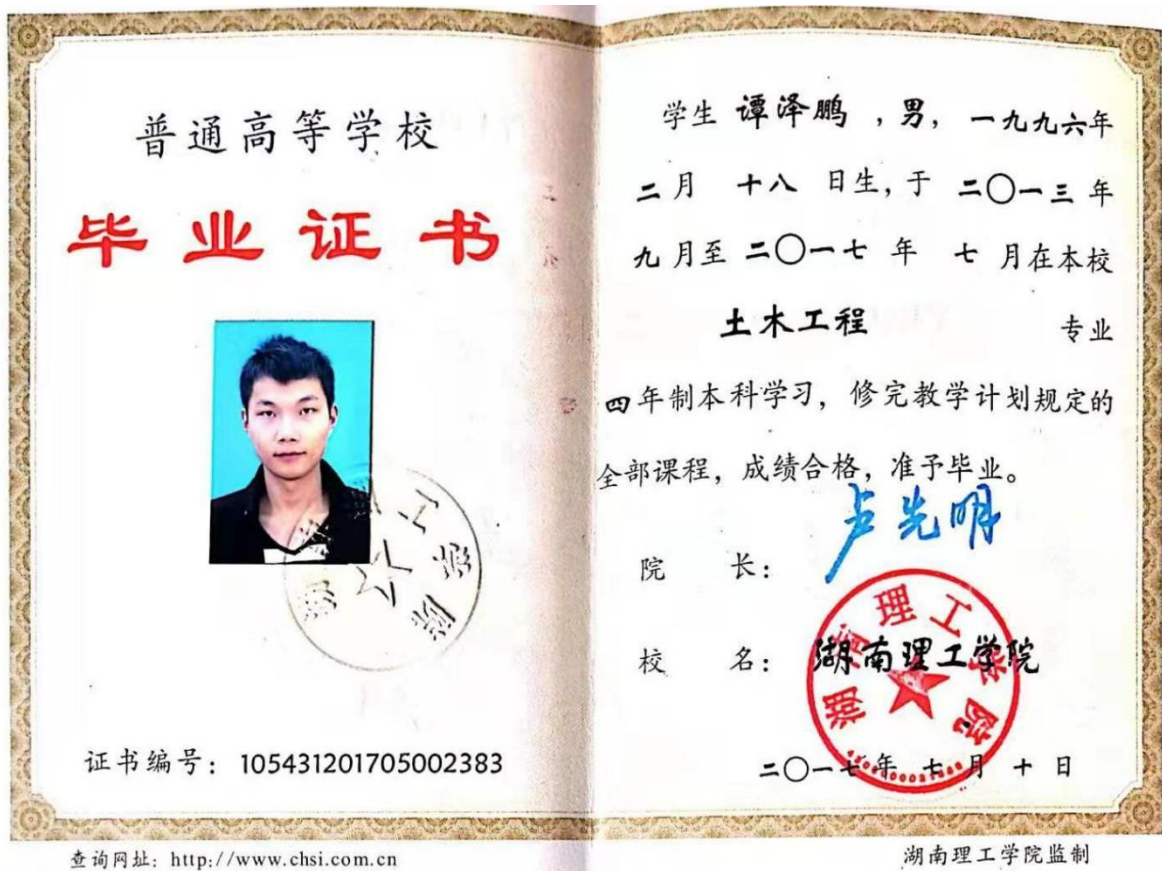 普通高等学校
毕业证书
证书编号：105431201705002383
查询网址：http://www.chsi.com.cn
学生 谭泽鹏，男，一九九六年
二月 十八 日生，于 二〇一三 年
九月至 二〇一七 年 七 月在本校
土木工程 专业
四年制本科学习，修完教学计划规定的
全部课程，成绩合格，准予毕业。
卢先明
院 长：
湖南理工学院
校 名：湖南理工学院
二〇一七年 七 月 十 日
湖南理工学院监制